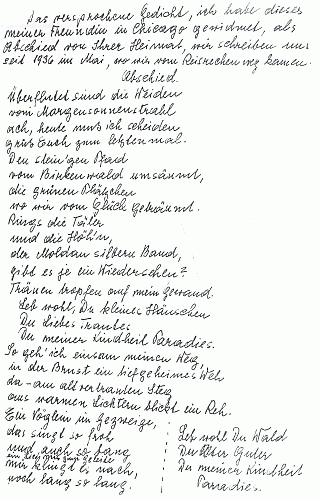 Das versprochene Gedicht, ich habe dieses
meiner Freundin in Chicago gewidmet, als
Abschied von Ihrer Heimat, wir schreiben uns
seit 1936 im Mai, wo wir vom Reisrechen weg kamen.
Abschied.
Überflutet sind die Weiden
vom Morgensonnenstrahl
ach, heute muß ich scheiden
grüß Euch zum letztenmal.
Den stein'gen Pfad
vom Birkenwald umsäumt,
die grünen Plätzchen
wo wir vom Glück geträumt.
Rings die Täler
und die Höh'n,
der Moldau silbern Band,
gibt es je ein Wiedersehen?
Tränen tropfen auf mein Gewand.
Leb wohl, Du kleines Häuschen
Du liebes Trautes
Du meiner Kindheit Paradies.
So geh' ich einsam meinen Weg,
in der Brust ein tiefgeheimes Weh,
da - am altvertrauten Steg
aus warmen Lichtern blickt ein Reh.
Ein Vöglein im Gezweige,
das singt so froh
und auch so bang
mir klingt es nach,
noch lang so lang.
Leb wohl Du Wald
Du Guter
Du meiner Kindheit
Parradies.